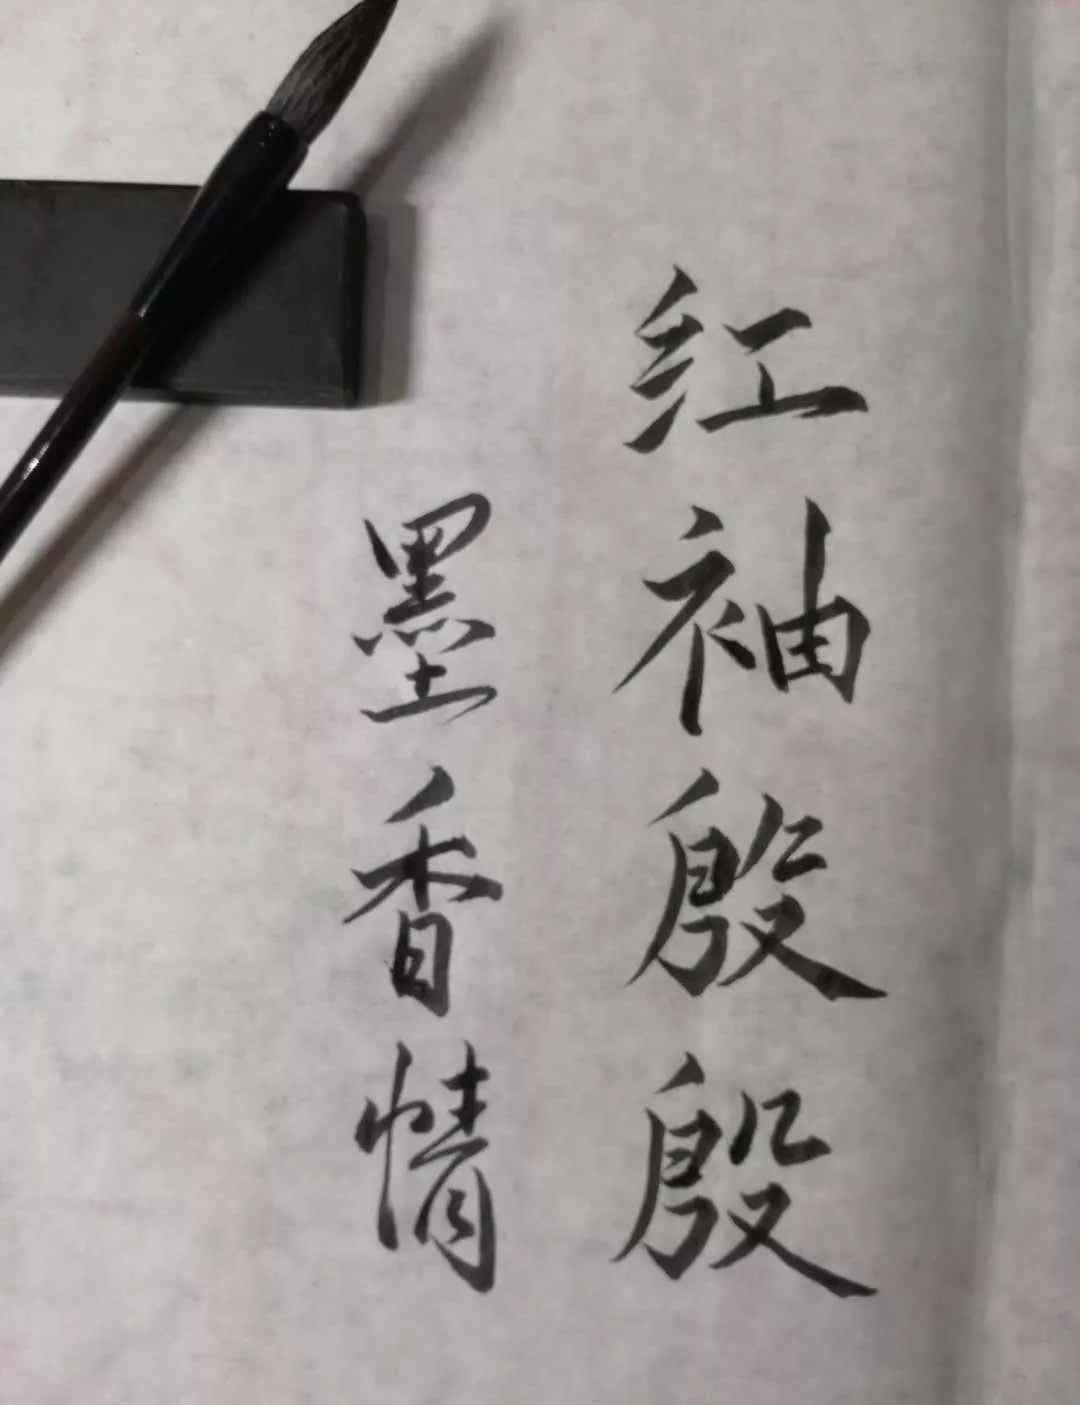 红袖殷殷
墨香情